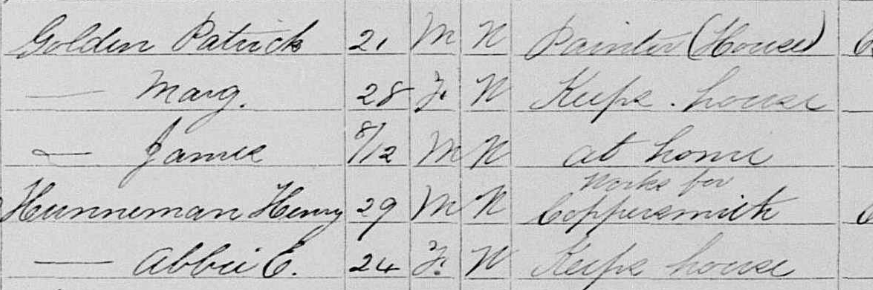 Golden Patrick 21 M W Painter (House)
— Marg. 28 F. W Keeps house
— James 8/12 M W at home
Hunneman Henry 29 M W Works for Coppersmith
— Abbie E. 24 F. W Keeps house